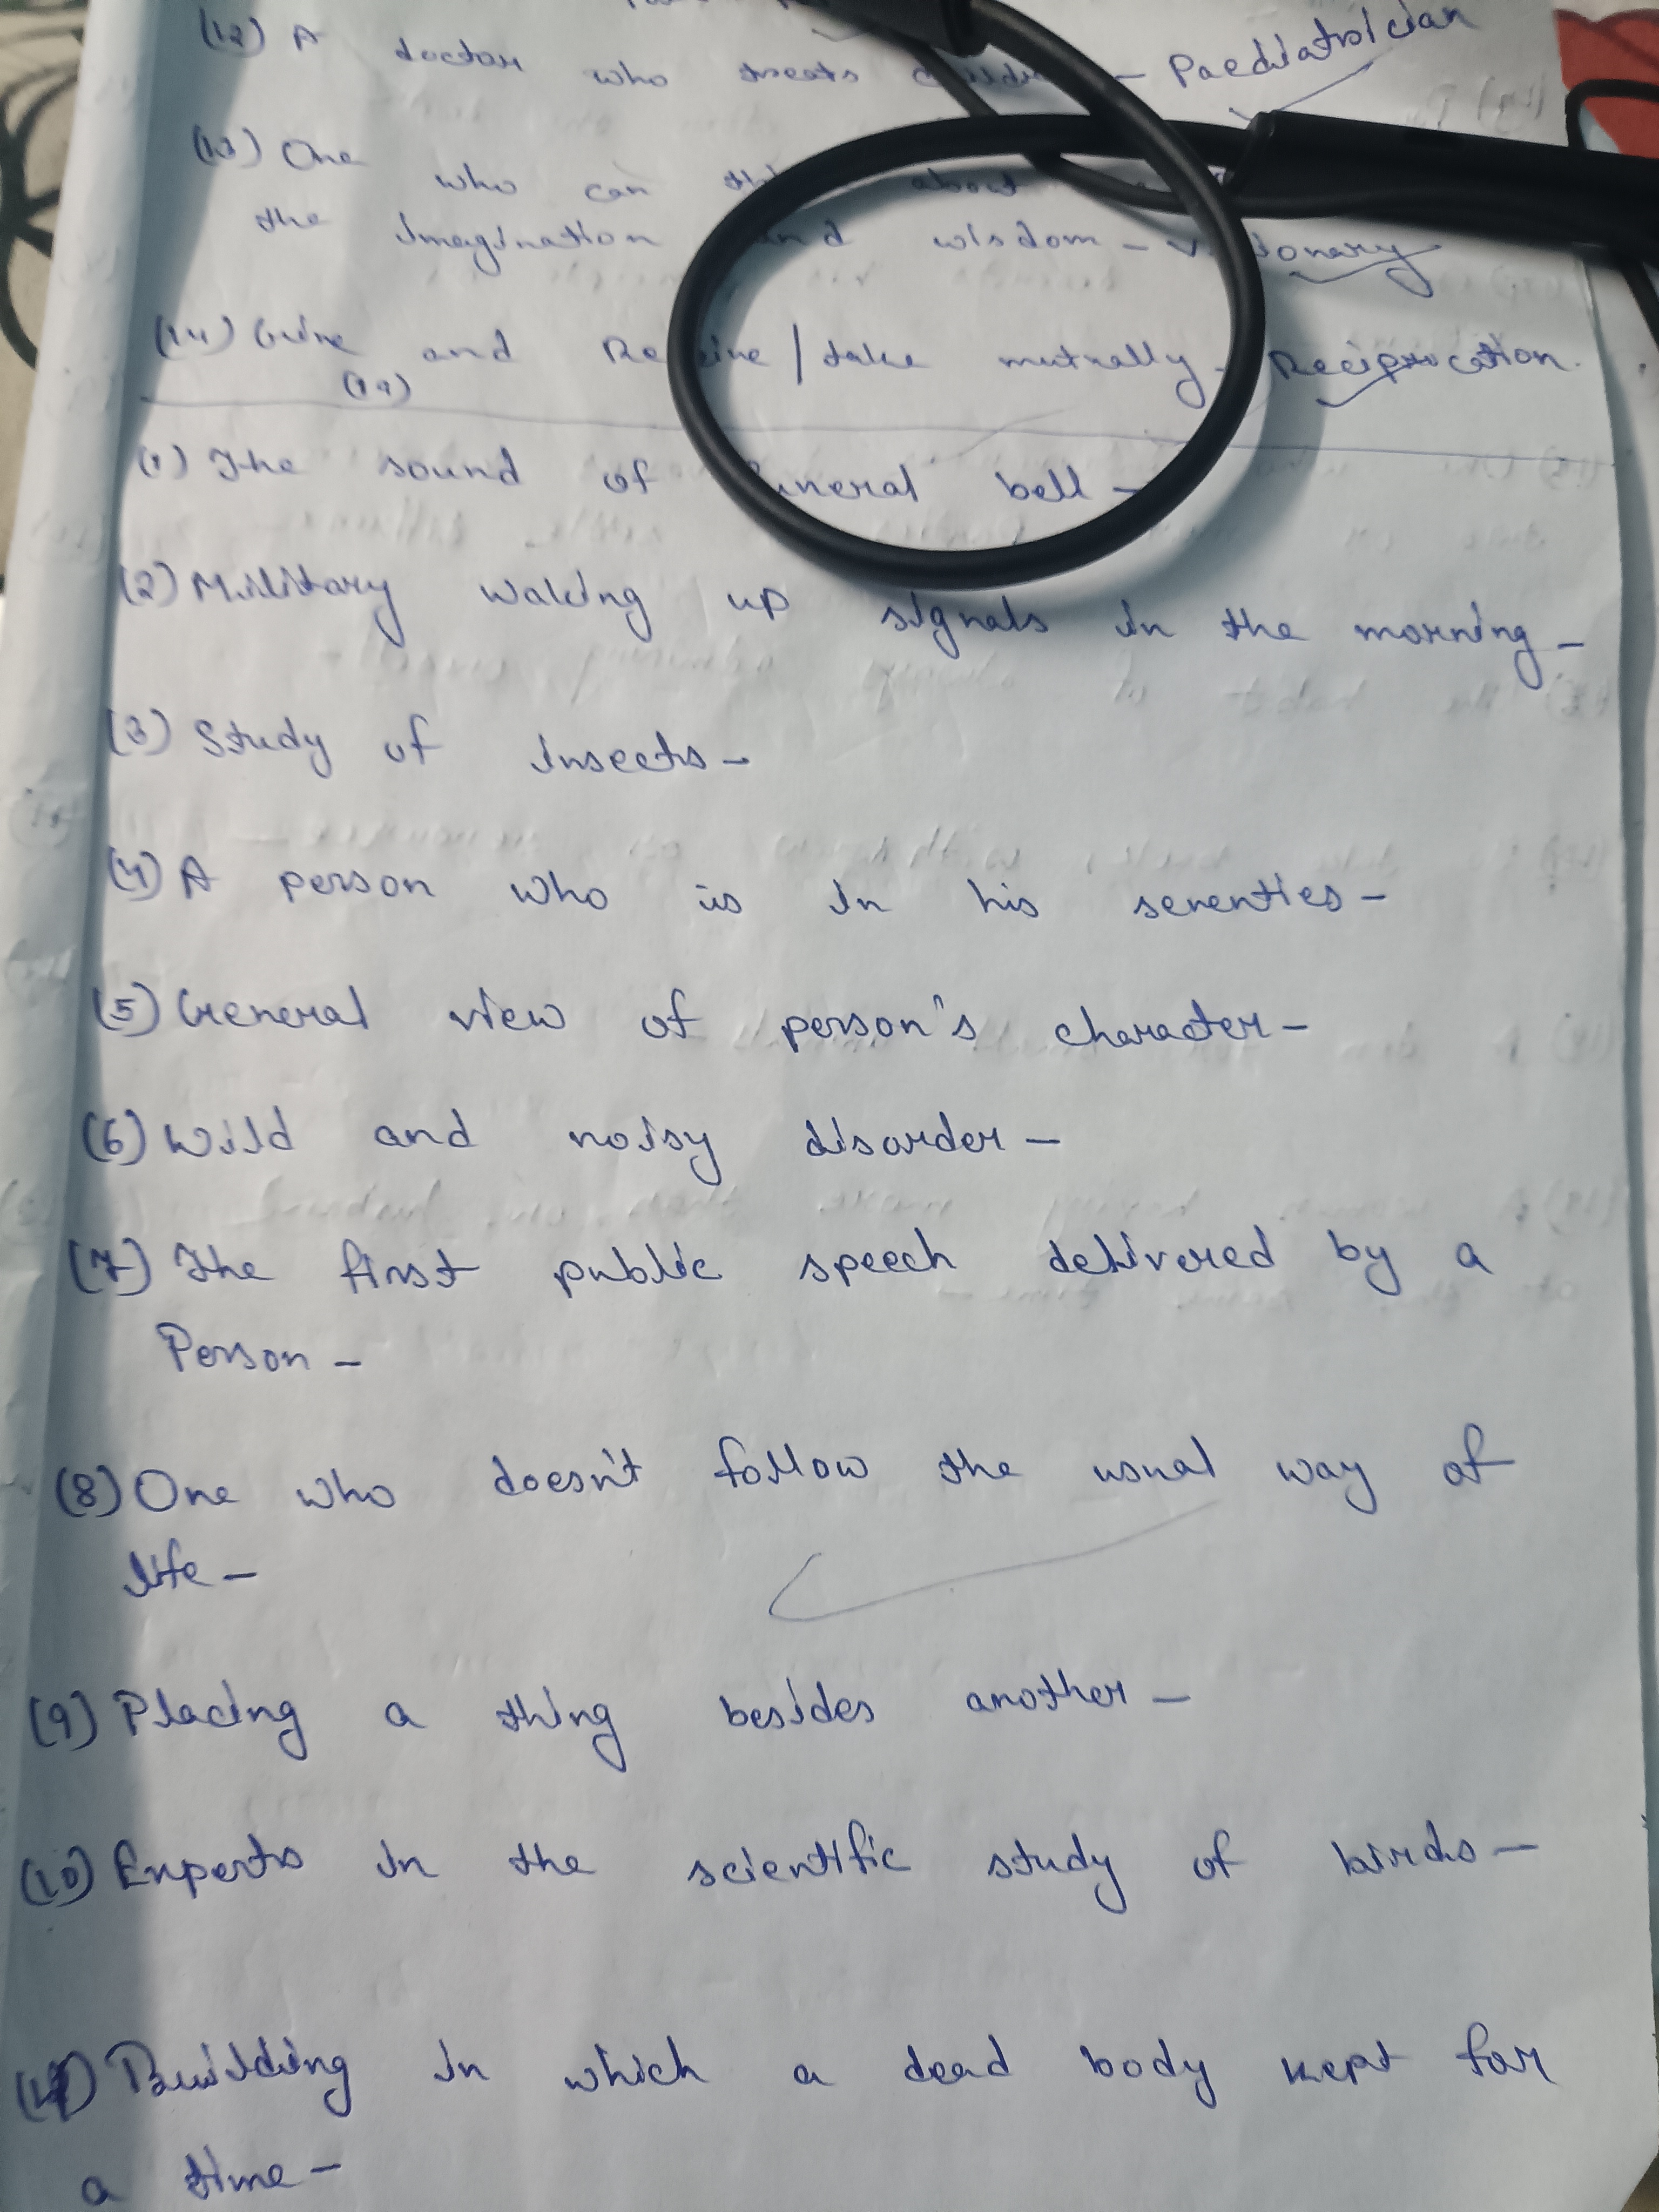 (12) A doctor who treats - Paediatrician
(13) One who can about
the imagination and wisdom - visionary
(14) Give and Receive / take mutually - Reciprocation.
(19)
(1) The sound of funeral bell -
(2) Military waking up signals in the morning -
(3) Study of insects -
(4) A person who is in his seventies -
(5) General view of person's character -
(6) Wild and noisy disorder -
(7) The first public speech delivered by a
Person -
(8) One who doesn't follow the usual way of
life -
(9) Placing a thing besides another -
(10) Experts in the scientific study of birds -
(11) Building in which a dead body kept for
a time -